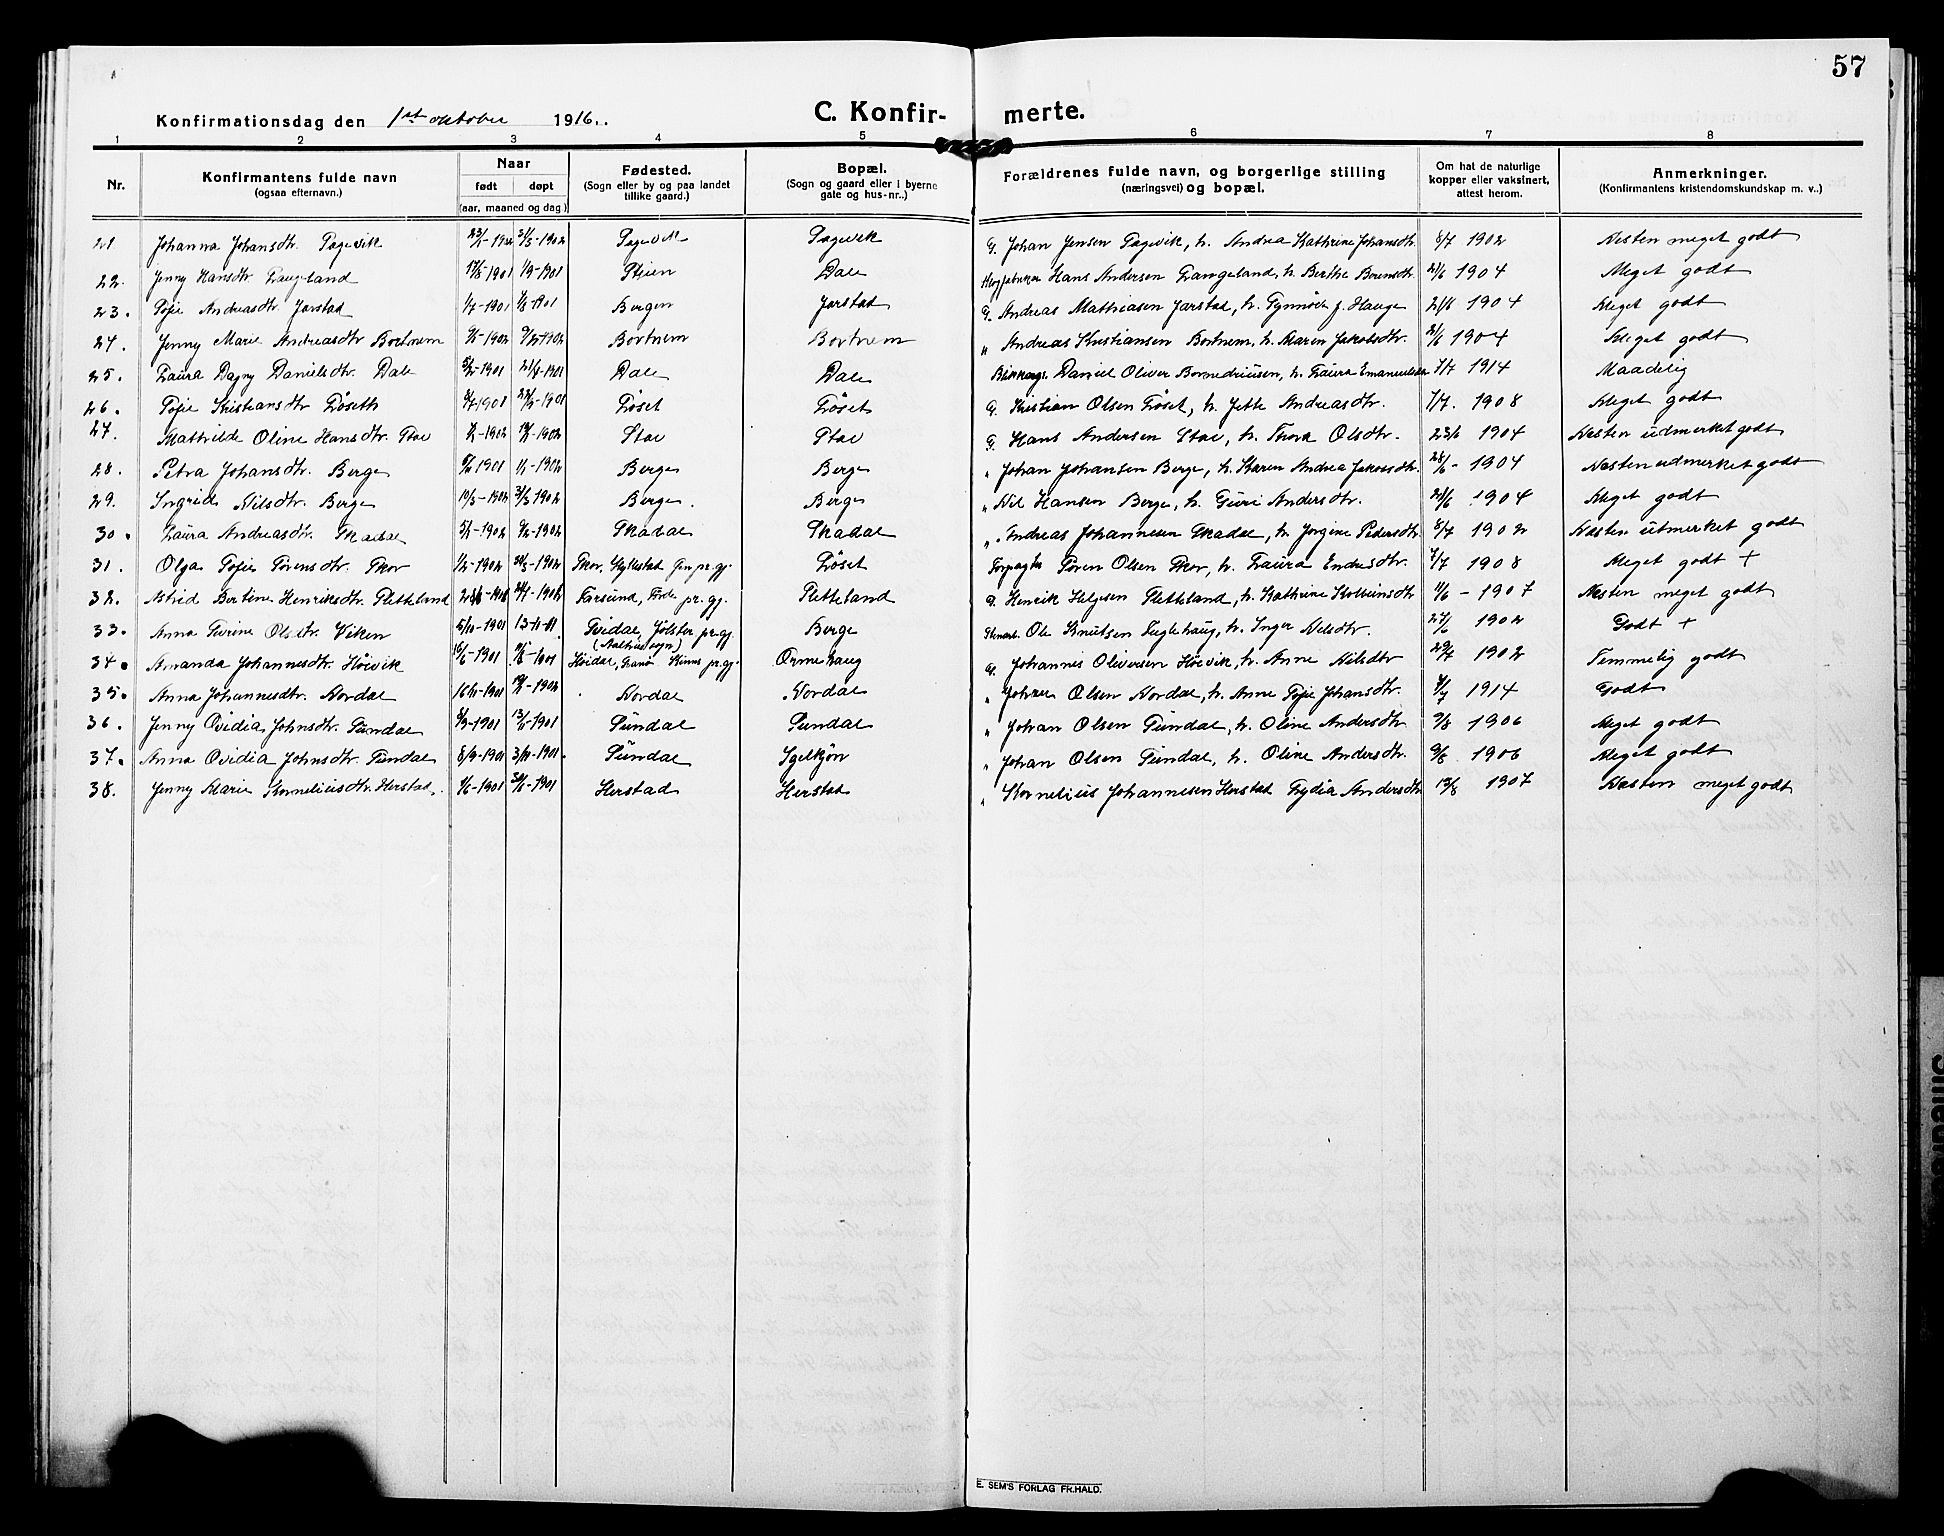 57
Konfirmationsdag den 1st oktober 1916.
C. Konfir- merte.
1 2 3 4 5 6 7 8
Nr. Konfirmantens fulde navn (ogsaa efternavn.) Naar født døpt (aar, maaned og dag) Fødested. (Sogn eller by og paa landet tillike gaard.) Bopæl. (Sogn og gaard eller i byerne gate og hus-nr..) Forældrenes fulde navn, og borgerlige stilling (næringsvei) og bopæl. Om hat de naturlige kopper eller vaksinert, attest herom. Anmerkninger. (Konfirmantens kristendomskundskap m. v..)
21. Johanna Johansdtr. Sagevik 31/3-1902 Sagevik Sagevik G. Johan Jensen Sagevik, h. Andrea Kathrine Johansdtr. 8/7 1902 Næsten meget godt
22. Jenny Hansdtr. Langeland 17/5-1901 1/9-1901 Stien Dale Hans Andersen Langeland, h. Berthe 21/6 1904 Meget godt
23. Sofie Andreasdtr. Jarstad 1/7-1901 1/8-1901 Bergen Jarstad G. Andreas Mathiasen Jarstad, h. Synnöve f. Hauge 21/6 1904 Meget godt
24. Jenny Marie Andreasdtr Bortnem 9/2-1902 Bortnem Bortnem " Andreas Kristiansen Bortnem, h. Maren Jakobsdtr. 21/6 1904 Meget godt
25. Laura Dagny Danielsdtr. Dale 21/4-1901 Dale Dale Daniel Oliver h. Laura 7/7 1914 Maadelig
26. Sofie Kristiansdtr Löseth 1901 Löset Löset G. Kristian Olsen Löset, h. Jette Andreasdtr. 7/7. 1908 Meget godt
27. Mathilde Oline Hansdtr. Stav 1902 Stav Stav G. Hans Andersen Stav, h. Thora Olsdtr. 23/6 1904 Næsten udmerket godt
28. Petra Johansdtr. Berge 1901 1/1-1902 Berge Berge " Johan Johansen Berge, h. Karen Andrea Jakobsdtr. 28/6- 1904 Næsten udmerket godt
29. Ingrid Nilsdtr. Berge 10/3-1902 31/3 1902 Berge. Berge " Nil Hansen Berge, h. Guri Andersdtr. 21/6 1904 Meget godt
30. Laura Andreasdtr. Skadal 5/1-1902 9/2-1902 Skadal Skadal " Andreas Johannesen Skadal, h. Jorgine Pedersdtr. 8/7 1902 Næsten utmerket godt
31. Olga Sofie Sörensdtr. Skor 1/2-1902 30/3-1902 Skor, Hyllestad pr.gj. Löset Forpagter Sören Olsen Skor, h. Laura Endresdtr. 7/7 1908 Meget godt +
32. Astrid Bertine Henriksdtr. Sletteland Farsund, Förde pr. gj. Sletteland G. Henrik Helgesen Sletteland, h. Kathrine Kolbeinsdtr 11/6 - 1907 Næsten meget godt
33. Anna Turine Olsdtr. Viken 5/10-1901 Svidal, Jölster pr.gj. Berge Ole Knutsen h. Inger Nilsdtr. 27/6 1902 Godt +
34. Amanda Johannesdtr. Höivik 16/6-1901 Höidal, Kinns pr.gj. Ormehaug G. Johannes Oliversen Höivik, h. Anne Nilsdtr 29/7 1902 Temmelig godt
35. Anna Johannesdtr. Nordal 16/11-1901 1902 Nordal Nordal " Johan Olsen Nordal, h. Anne Sofie Johansdtr. 7/7 1914 Godt
36. Jenny Ovidia Johnsdtr. Sundal 8/9-1901 1901 Sundal Sundal " Johan Olsen Sundal, h. Oline Andersdtr 9/8 1906 Meget godt
37. Anna Ovidia Johnsdtr. Sundal 8/9-1901 3/11-1901. Sundal Igelkjön " Johan Olsen Sundal, h. Oline Andersdtr. 9/8 1906 Meget godt
38. Jenny Marie Kornelieusdtr. Herstad. 1/6-1901 30/6-1901 Herstad Herstad " Kornelius Johannesen Herstad Lydia Andersdtr 13/8 1907 Næsten meget godt
E. SEM'S FORLAG FR.HALD.